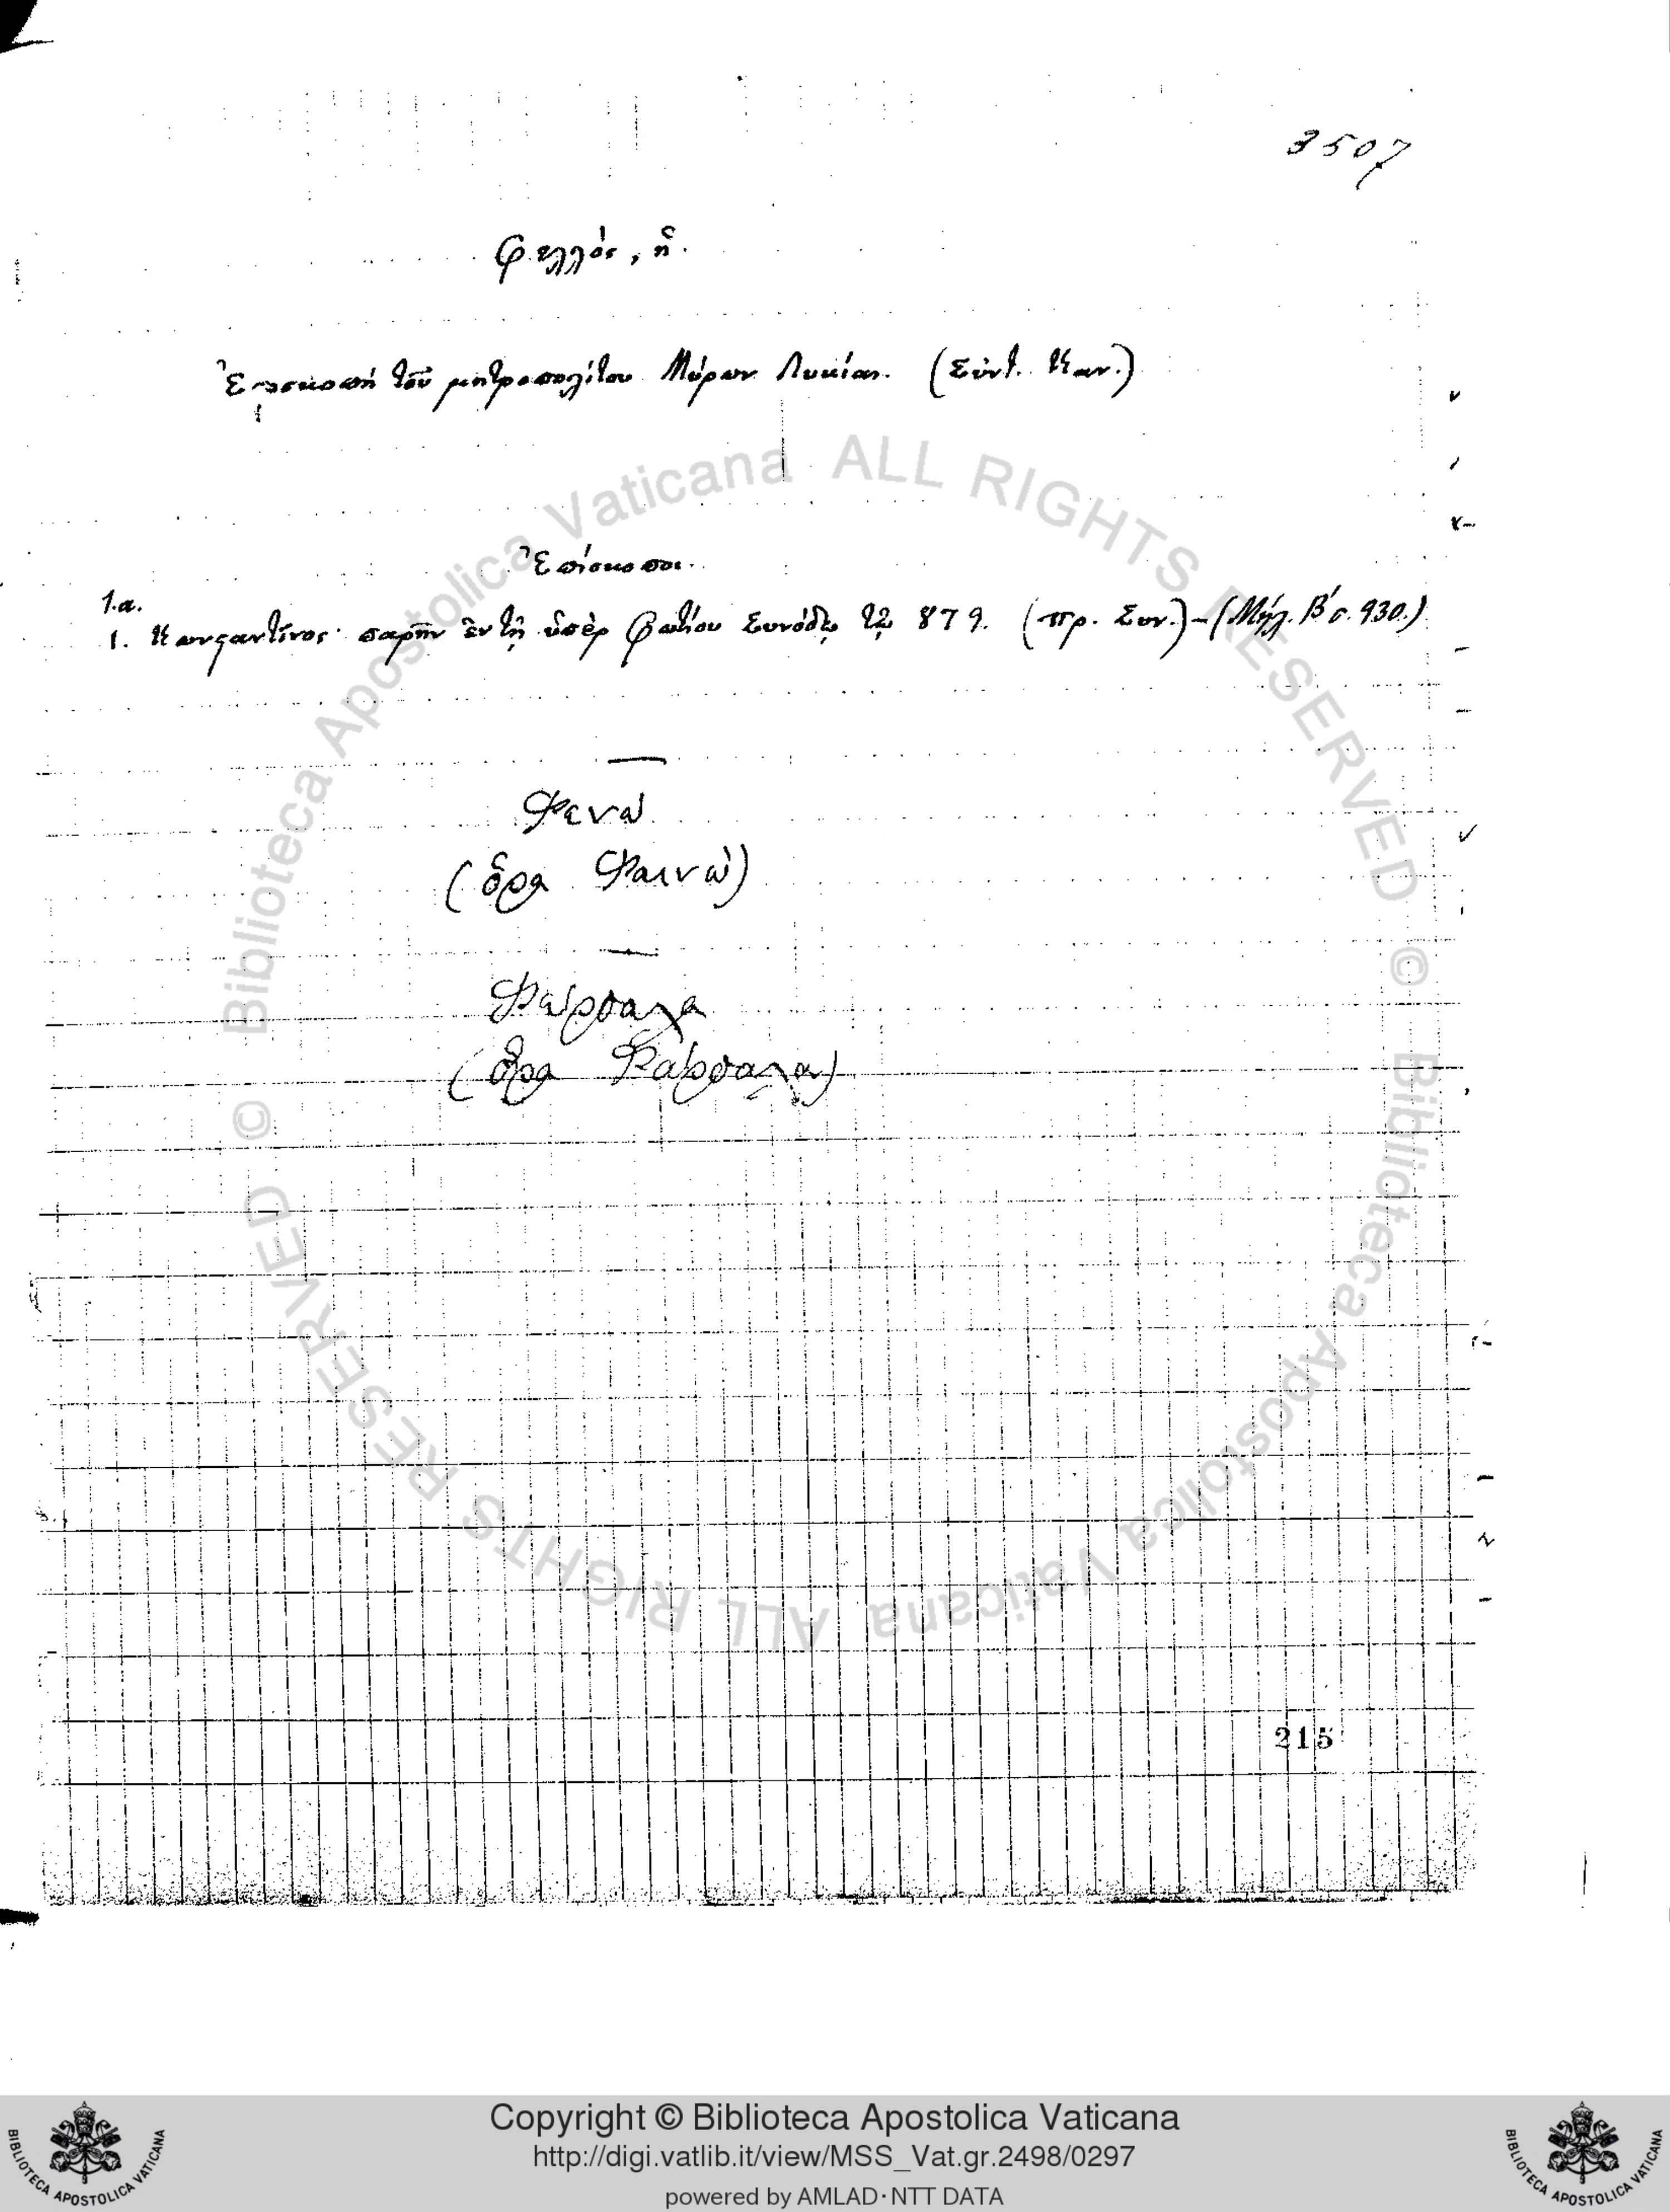 3507
Φελλός, ἡ.
Ἐπισκοπὴ τοῦ μητροπολίτου Μύρων Λυκίας. (Σύντ. Καν.)
Ἐπίσκοποι.
1.α.
1. Κωνσαντῖνος· παρῆν ἐν τῇ ὑπὲρ Φωτίου Συνόδῳ τῷ 879. (Πρ. Συν.) - (Μήλ. Β' σ. 930.)
Φενώ
(ὅρα Φαινὼ)
Φέρσαλα
(ὅρα Φάρσαλα)
215
Biblioteca Apostolica Vaticana ALL RIGHTS RESERVED ©
Biblioteca Apostolica Vaticana ALL RIGHTS RESERVED ©
BIBLIOTECA APOSTOLICA VATICANA
Copyright © Biblioteca Apostolica Vaticana
http://digi.vatlib.it/view/MSS_Vat.gr.2498/0297
powered by AMLAD·NTT DATA
BIBLIOTECA APOSTOLICA VATICANA